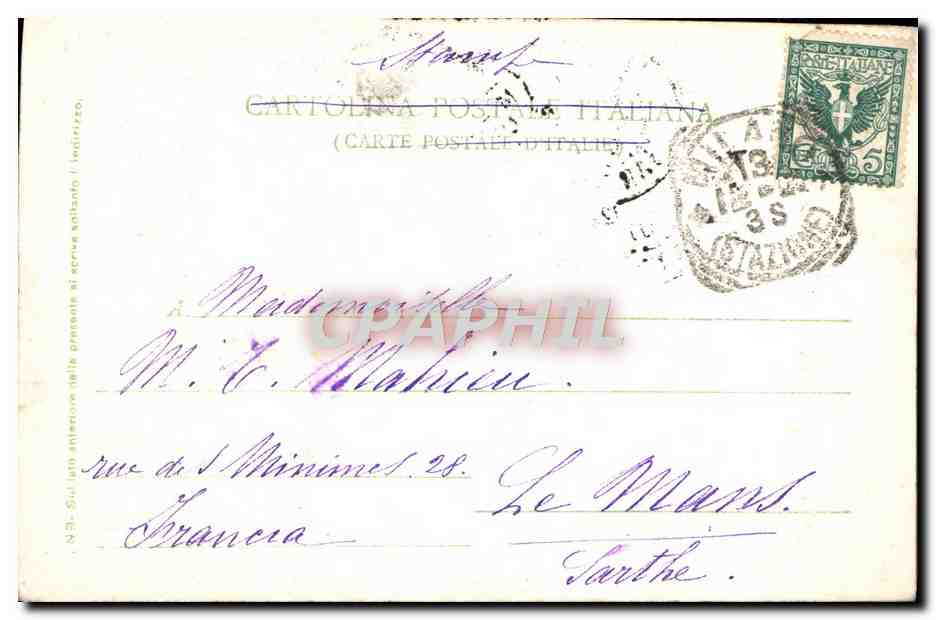 Stamp
CARTOLINA POSTALE ITALIANA
(CARTE POSTALE D'ITALIE)
POSTE ITALIANE
C. 5
MILANO
12
3S
(STAZIONE)
A Mademoiselle
CPAPHIL
M. T. Mahieu.
rue des Minimes. 28.
Le Mans.
Francia
Sarthe.
NB- Sul lato anteriore della presente si scrive soltanto l'indirizzo.